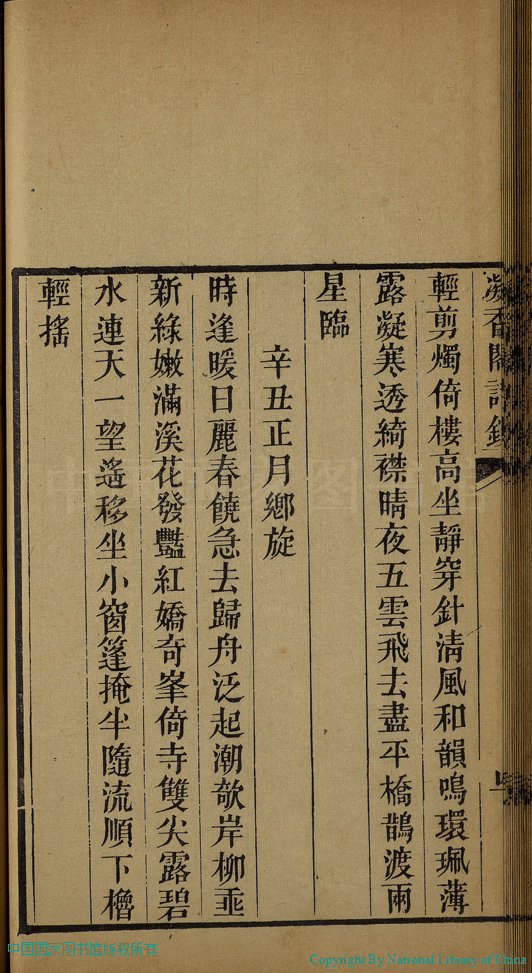 凝香閣詩鈔
輕剪燭倚樓高坐靜穿針清風和韻鳴環珮薄
露凝寒透綺襟晴夜五雲飛去盡平橋鵲渡兩
星臨
辛丑正月鄉旋
時逢暖日麗春饒急去歸舟泛起潮欹岸柳垂
新綠嫩滿溪花發豔紅嬌奇峯倚寺雙尖露碧
水連天一望遙移坐小窗篷掩半隨流順下櫓
輕搖
中国国家图书馆版权所有
Copyright By National Library of China